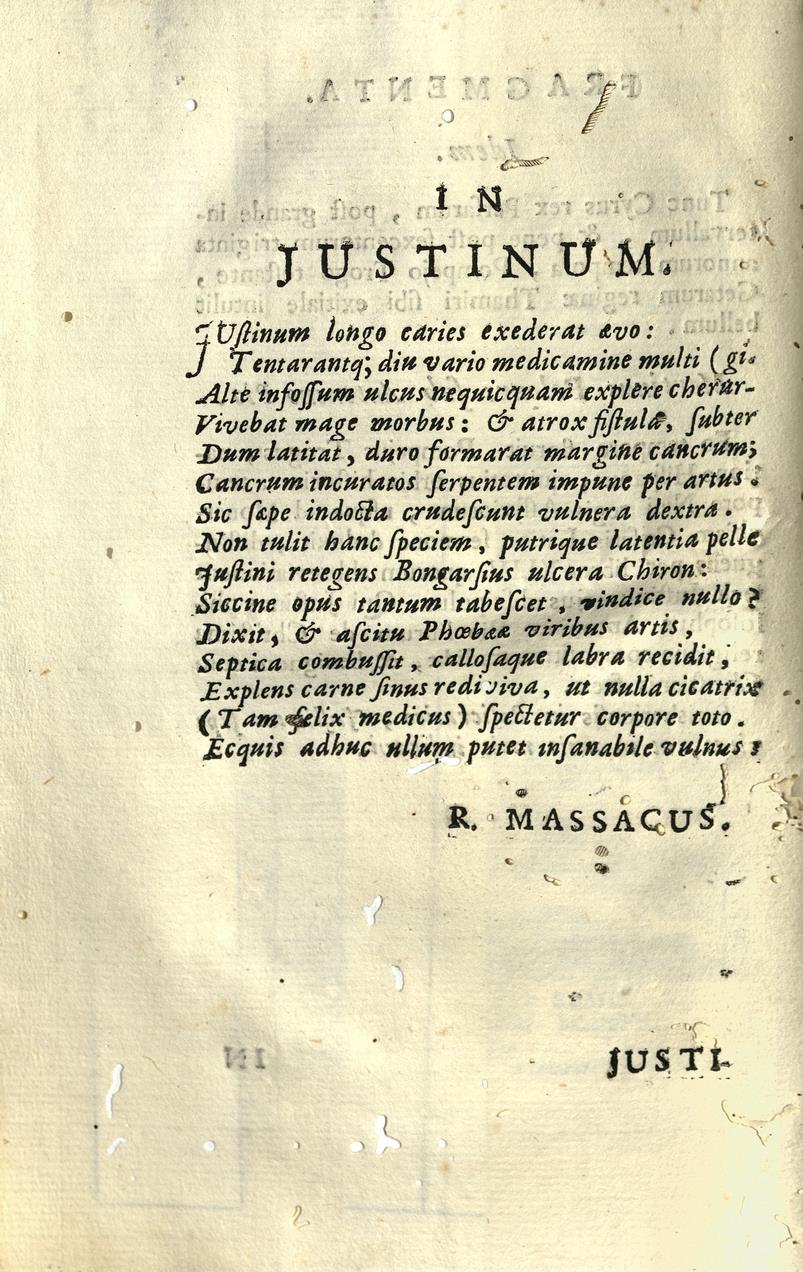 IN
JUSTINUM.
JUſtinum longo caries exederat ævo:
Tentarantq; diu vario medicamine multi (gi.
Altè infoſſum ulcus nequicquam explere cherur-
Vivebat mage morbus: & atrox fiſtulæ, ſubter
Dum latitat, duro formarat margine cancrum;
Cancrum incuratos ſerpentem impune per artus.
Sic ſæpe indocta crudeſcunt vulnera dextra.
Non tulit hanc ſpeciem, putrique latentia pelle
Juſtini retegens Bongarſius ulcera Chiron:
Siccine opus tantum tabeſcet, vindice nullo?
Dixit, & aſcitu Phœbææ viribus artis,
Septica combuſſit, calloſaque labra recidit,
Explens carne ſinus rediviva, ut nulla cicatrix
(Tam felix medicus) ſpectetur corpore toto.
Ecquis adhuc ullum putet inſanabile vulnus?
R. MASSACUS.
JUSTI-